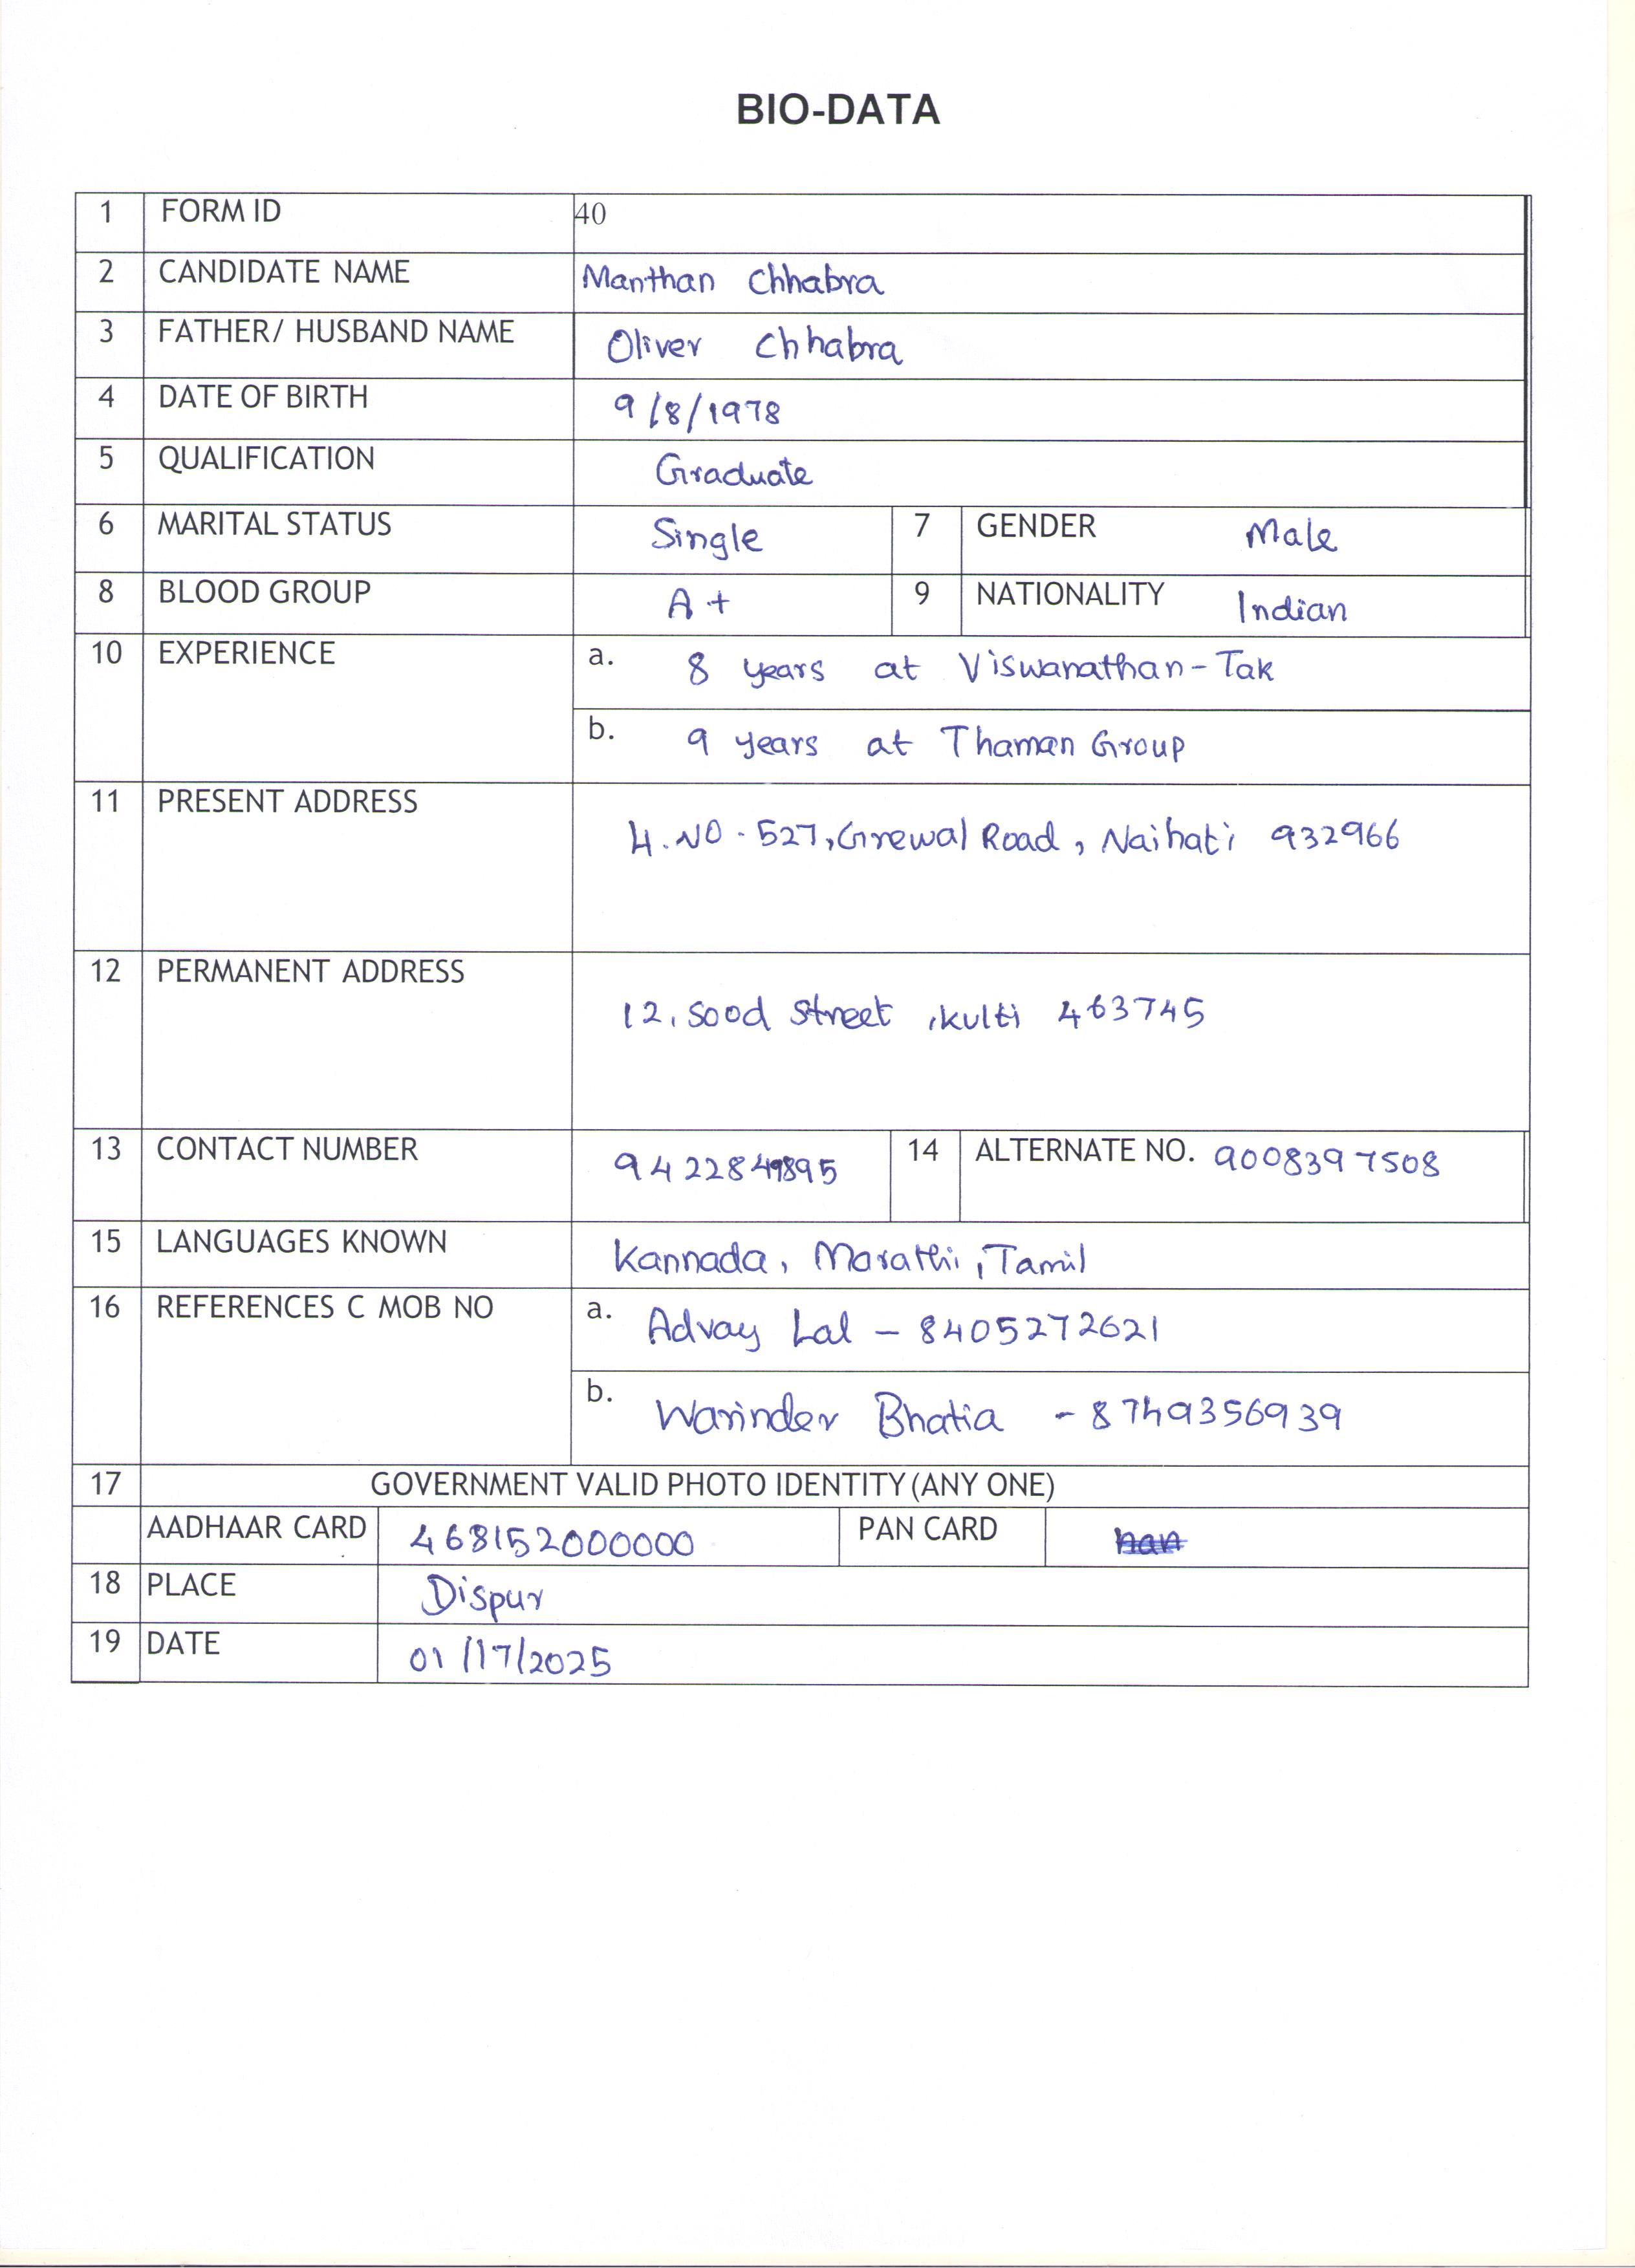 BIO-DATA
1 FORM ID 40
2 CANDIDATE NAME Manthan Chhabra
3 FATHER/ HUSBAND NAME Oliver Chhabra
4 DATE OF BIRTH 9/8/1978
5 QUALIFICATION Graduate
6 MARITAL STATUS Single 7 GENDER Male
8 BLOOD GROUP A+ 9 NATIONALITY Indian
10 EXPERIENCE a. 8 years at Viswanathan-Tak
b. 9 years at Thaman Group
11 PRESENT ADDRESS
H.NO-527, Grewal Road, Naihati 932966
12 PERMANENT ADDRESS
12, Sood Street, Kulti 463745
13 CONTACT NUMBER 9422849895 14 ALTERNATE NO. 9008397508
15 LANGUAGES KNOWN Kannada, Marathi, Tamil
16 REFERENCES C MOB NO a. Advay Lal - 8405272621
b. Warinder Bhatia - 8749356939
17 GOVERNMENT VALID PHOTO IDENTITY (ANY ONE)
AADHAAR CARD 468152000000 PAN CARD
18 PLACE Dispur
19 DATE 01/17/2025